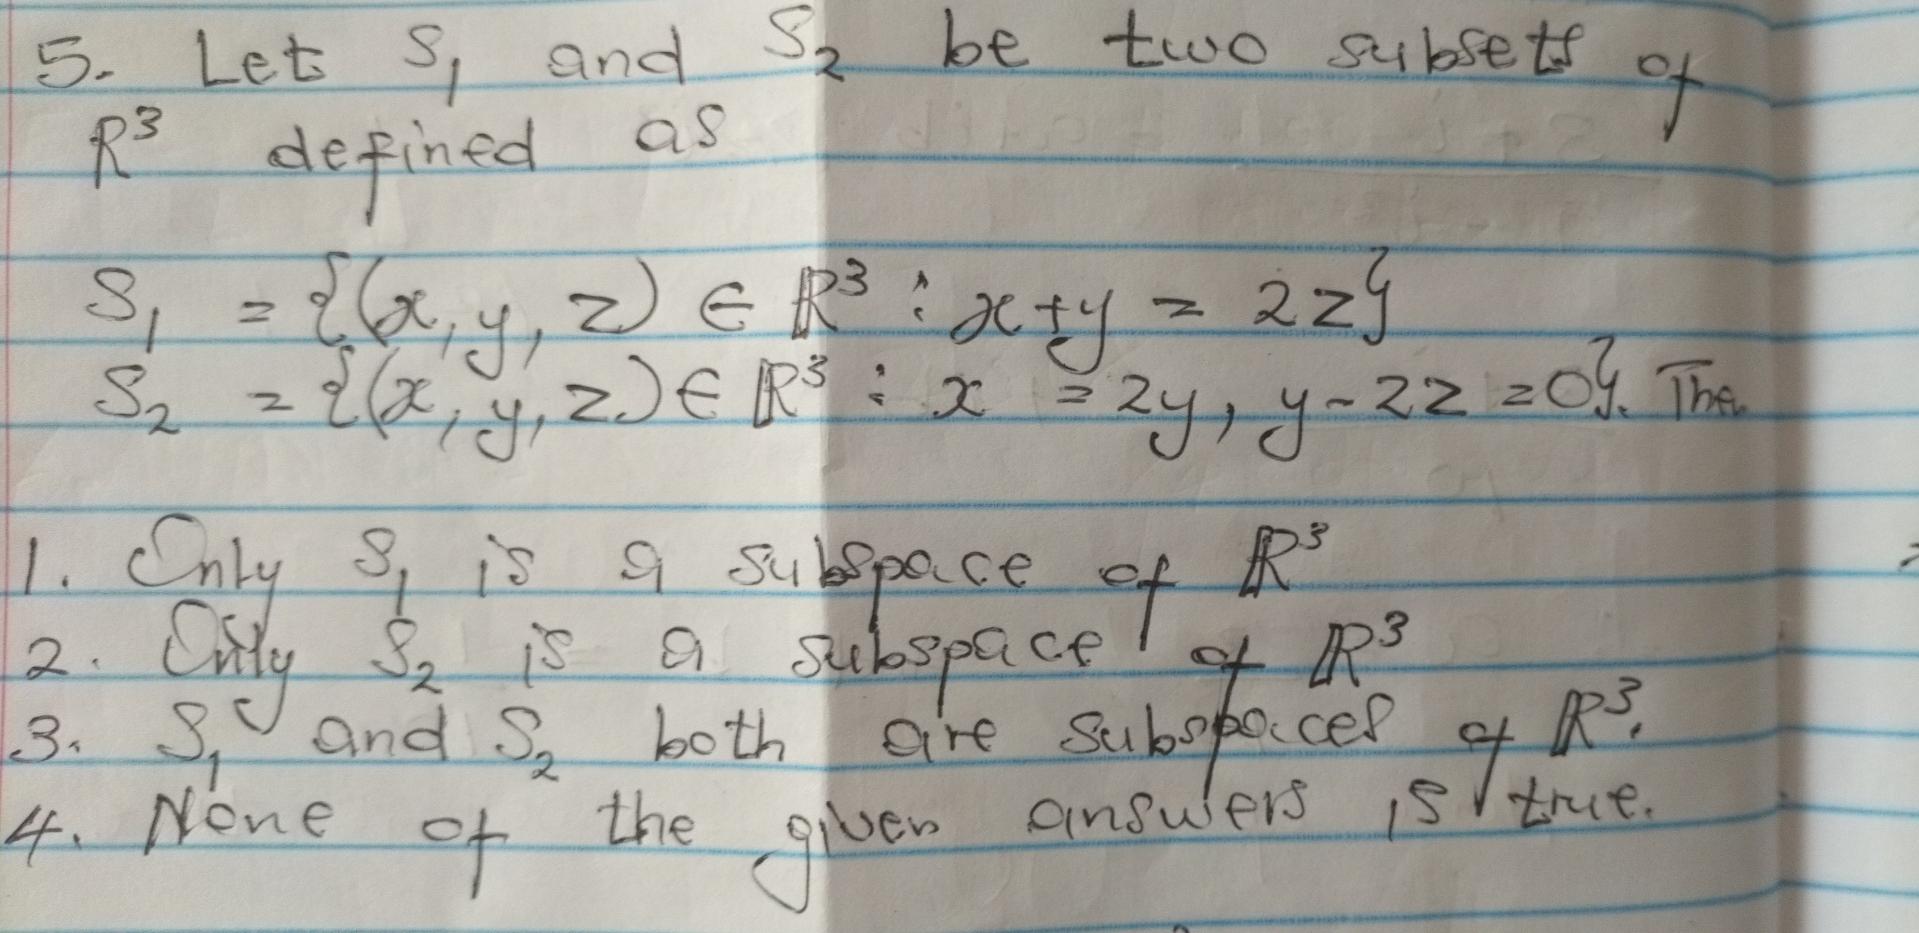 5. Let S₁ and S₂ be two subsets of
R³ defined as
S₁ = {(x, y, z) ∈ ℝ³ : x+y = 2z}
S₂ = {(x, y, z) ∈ ℝ³ : x = 2y, y-2z = 0}. Then
1. Only S₁ is a subspace of ℝ³
2. Only S₂ is a subspace of ℝ³
3. S₁ and S₂ both are subspaces of ℝ³.
4. None of the given answers is true.